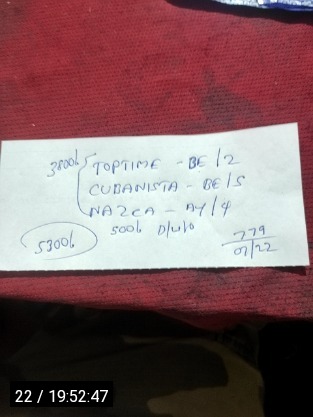 3800/- TOPTIME - BE/2
CUBANISTA - BE/5
NAZCA - AY/4
500/- D/W/O
5300/-
779
07/22
22 / 19:52:47